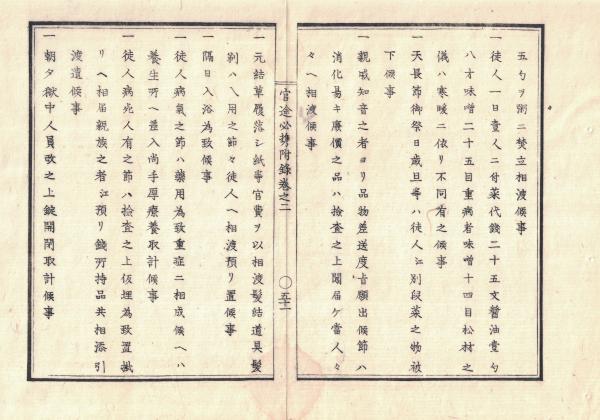 五勺ヲ粥ニ焚立相渡候事
一徒人一日壹人ニ付菜代錢二十五文醬油壹勺
八才味噌二十五目重病者味噌十四目松材之
儀ハ寒暖ニ依リ不同有之候事
一天長節御祭日歳旦等ハ徒人江別段菜之物被
下候事
一親戚知音之者ヨリ品物差送度旨願出候節ハ
消化易キ廉價之品ハ檢査之上聞届ケ當人々
々ヘ相渡候事
官途必携附錄卷之二
〇五十一
一元結草履落シ紙等官費ヲ以相渡髮結道具髮
剃ハ入用之節々徒人ヘ相渡預リ置候事
一隔日入浴為致候事
一徒人病氣之節ハ藥用為致重症ニ相成候ヘハ
養生所ヘ差入尚手厚療養取計候事
一徒人病死人有之節ハ檢査之上仮埋為致置掛
リヘ相届親族之者江預リ錢所持品共相添引
渡遣候事
一朝夕獄中人員改之上錠開閉取計候事